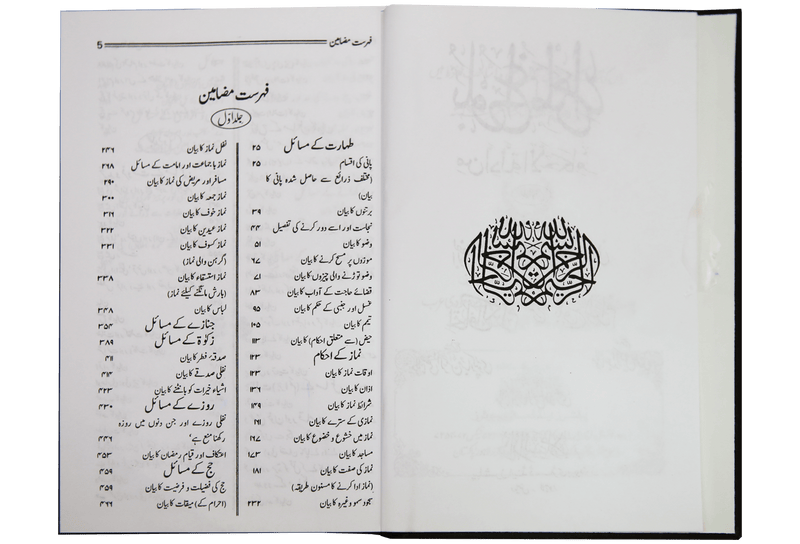 فہرست مضامین 5
فہرست مضامین
جلد اوّل
طہارت کے مسائل ۲۵
پانی کی اقسام ۲۵
(مختلف ذرائع سے حاصل شدہ پانی کا
بیان)
برتنوں کا بیان ۳۹
نجاست اور اسے دور کرنے کی تفصیل ۴۴
وضو کا بیان ۵۱
موزوں پر مسح کرنے کا بیان ۶۷
وضو توڑنے والی چیزوں کا بیان ۷۱
قضائے حاجت کے آداب کا بیان ۸۳
غسل اور جنبی کے حکم کا بیان ۹۵
تیمم کا بیان ۱۰۵
حیض (سے متعلق احکام) کا بیان ۱۱۳
نماز کے احکام ۱۲۳
اوقات نماز کا بیان ۱۲۳
اذان کا بیان ۱۳۶
شرائط نماز کا بیان ۱۴۹
نمازی کے سترے کا بیان ۱۶۱
نماز میں خشوع و خضوع کا بیان ۱۶۷
مساجد کا بیان ۱۷۳
نماز کی صفت کا بیان ۱۸۱
(نماز ادا کرنے کا مسنون طریقہ)
سجود سہو وغیرہ کا بیان ۲۳۲
نفل نماز کا بیان ۲۴۶
نماز باجماعت اور امامت کے مسائل ۲۶۸
مسافر اور مریض کی نماز کا بیان ۲۹۰
نماز جمعہ کا بیان ۳۰۰
نماز خوف کا بیان ۳۱۶
نماز عیدین کا بیان ۳۲۲
نماز کسوف کا بیان ۳۳۱
(گرہن والی نماز)
نماز استسقاء کا بیان ۳۳۸
(بارش مانگنے کیلئے نماز)
لباس کا بیان ۳۴۸
جنازے کے مسائل ۳۵۴
زکوٰۃ کے مسائل ۳۸۹
صدقہ فطر کا بیان ۴۱۱
نفلی صدقے کا بیان ۴۱۴
اشیاء خیرات کو بانٹنے کا بیان ۴۲۳
روزے کے مسائل ۴۳۰
نفلی روزے اور جن دنوں میں روزہ
رکھنا منع ہے' ۴۴۶
اعتکاف اور قیام رمضان کا بیان ۴۵۳
حج کے مسائل ۴۵۹
حج کی فضیلت و فرضیت کا بیان ۴۵۹
(احرام کے) میقات کا بیان ۴۶۶